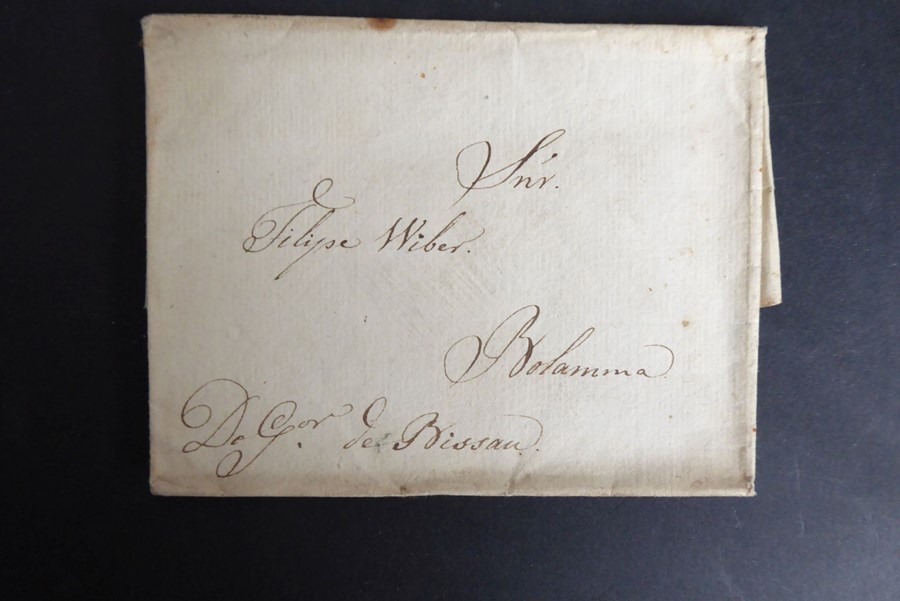 Snr.
Filipe Wiber.
Bolamma.
Do Gor. de Bissau.